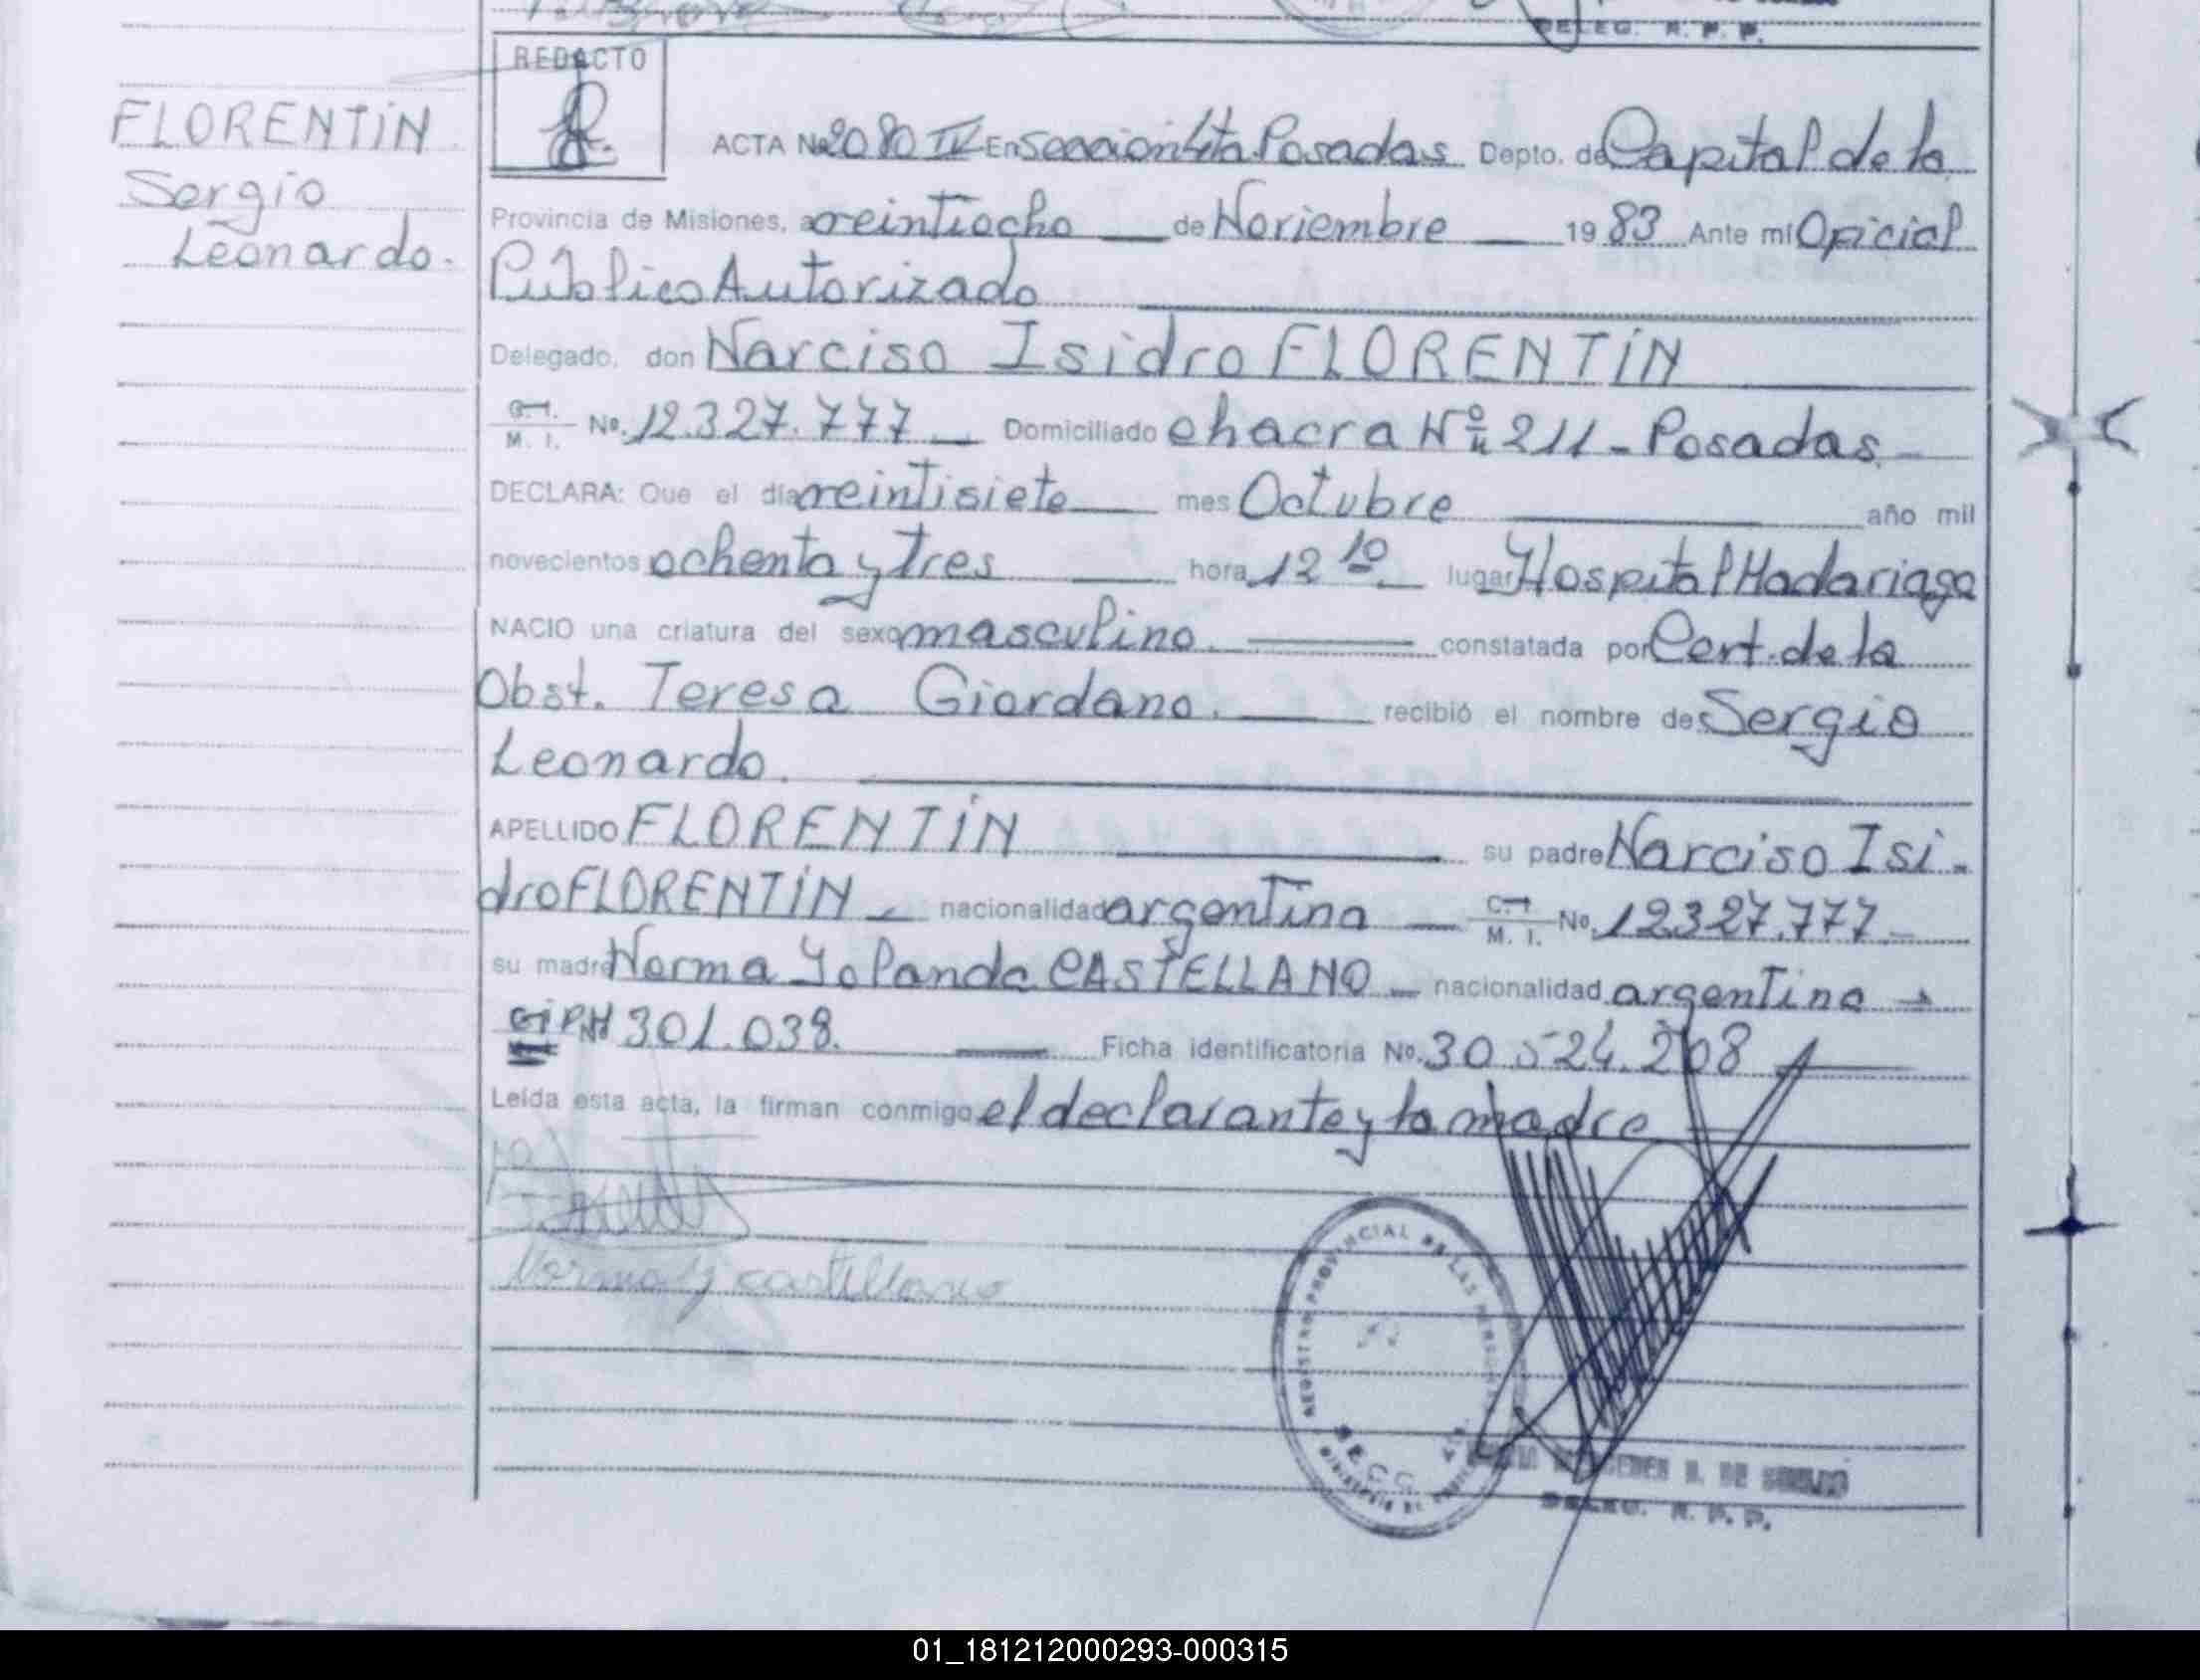 DELEG. R. P. P.
REDACTO
FLORENTÍN
Sergio
Leonardo.
ACTA No 2080 IV En Sección 4ta. Posadas Depto. de Capital de la
Provincia de Misiones, a veintiocho de Noviembre 1983 Ante mí Oficial
Público Autorizado
Delegado, don Narciso Isidro FLORENTÍN
C.I. M. I. No. 12.327.777 Domiciliado chacra Nº 211 - Posadas
DECLARA: Que el día veintisiete mes Octubre año mil
novecientos ochenta y tres hora 12 10 lugar Hospital Madariaga
NACIO una criatura del sexo masculino. constatada por Cert. de la
Obst. Teresa Giordano. recibió el nombre de Sergio
Leonardo.
APELLIDO FLORENTÍN su padre Narciso Isi-
dro FLORENTÍN nacionalidad argentina C.I. M. I. No. 12.327.777
su madre Norma Yolanda CASTELLANO nacionalidad argentina
301.038. Ficha identificatoria No. 30.524.268
Leída esta acta, la firman conmigo el declarante y la madre
Norma Y castellano
REGISTRO PROVINCIAL DE LAS PERSONAS
SECC. 4ta.
DELEG. R. P. P.
01_181212000293-000315